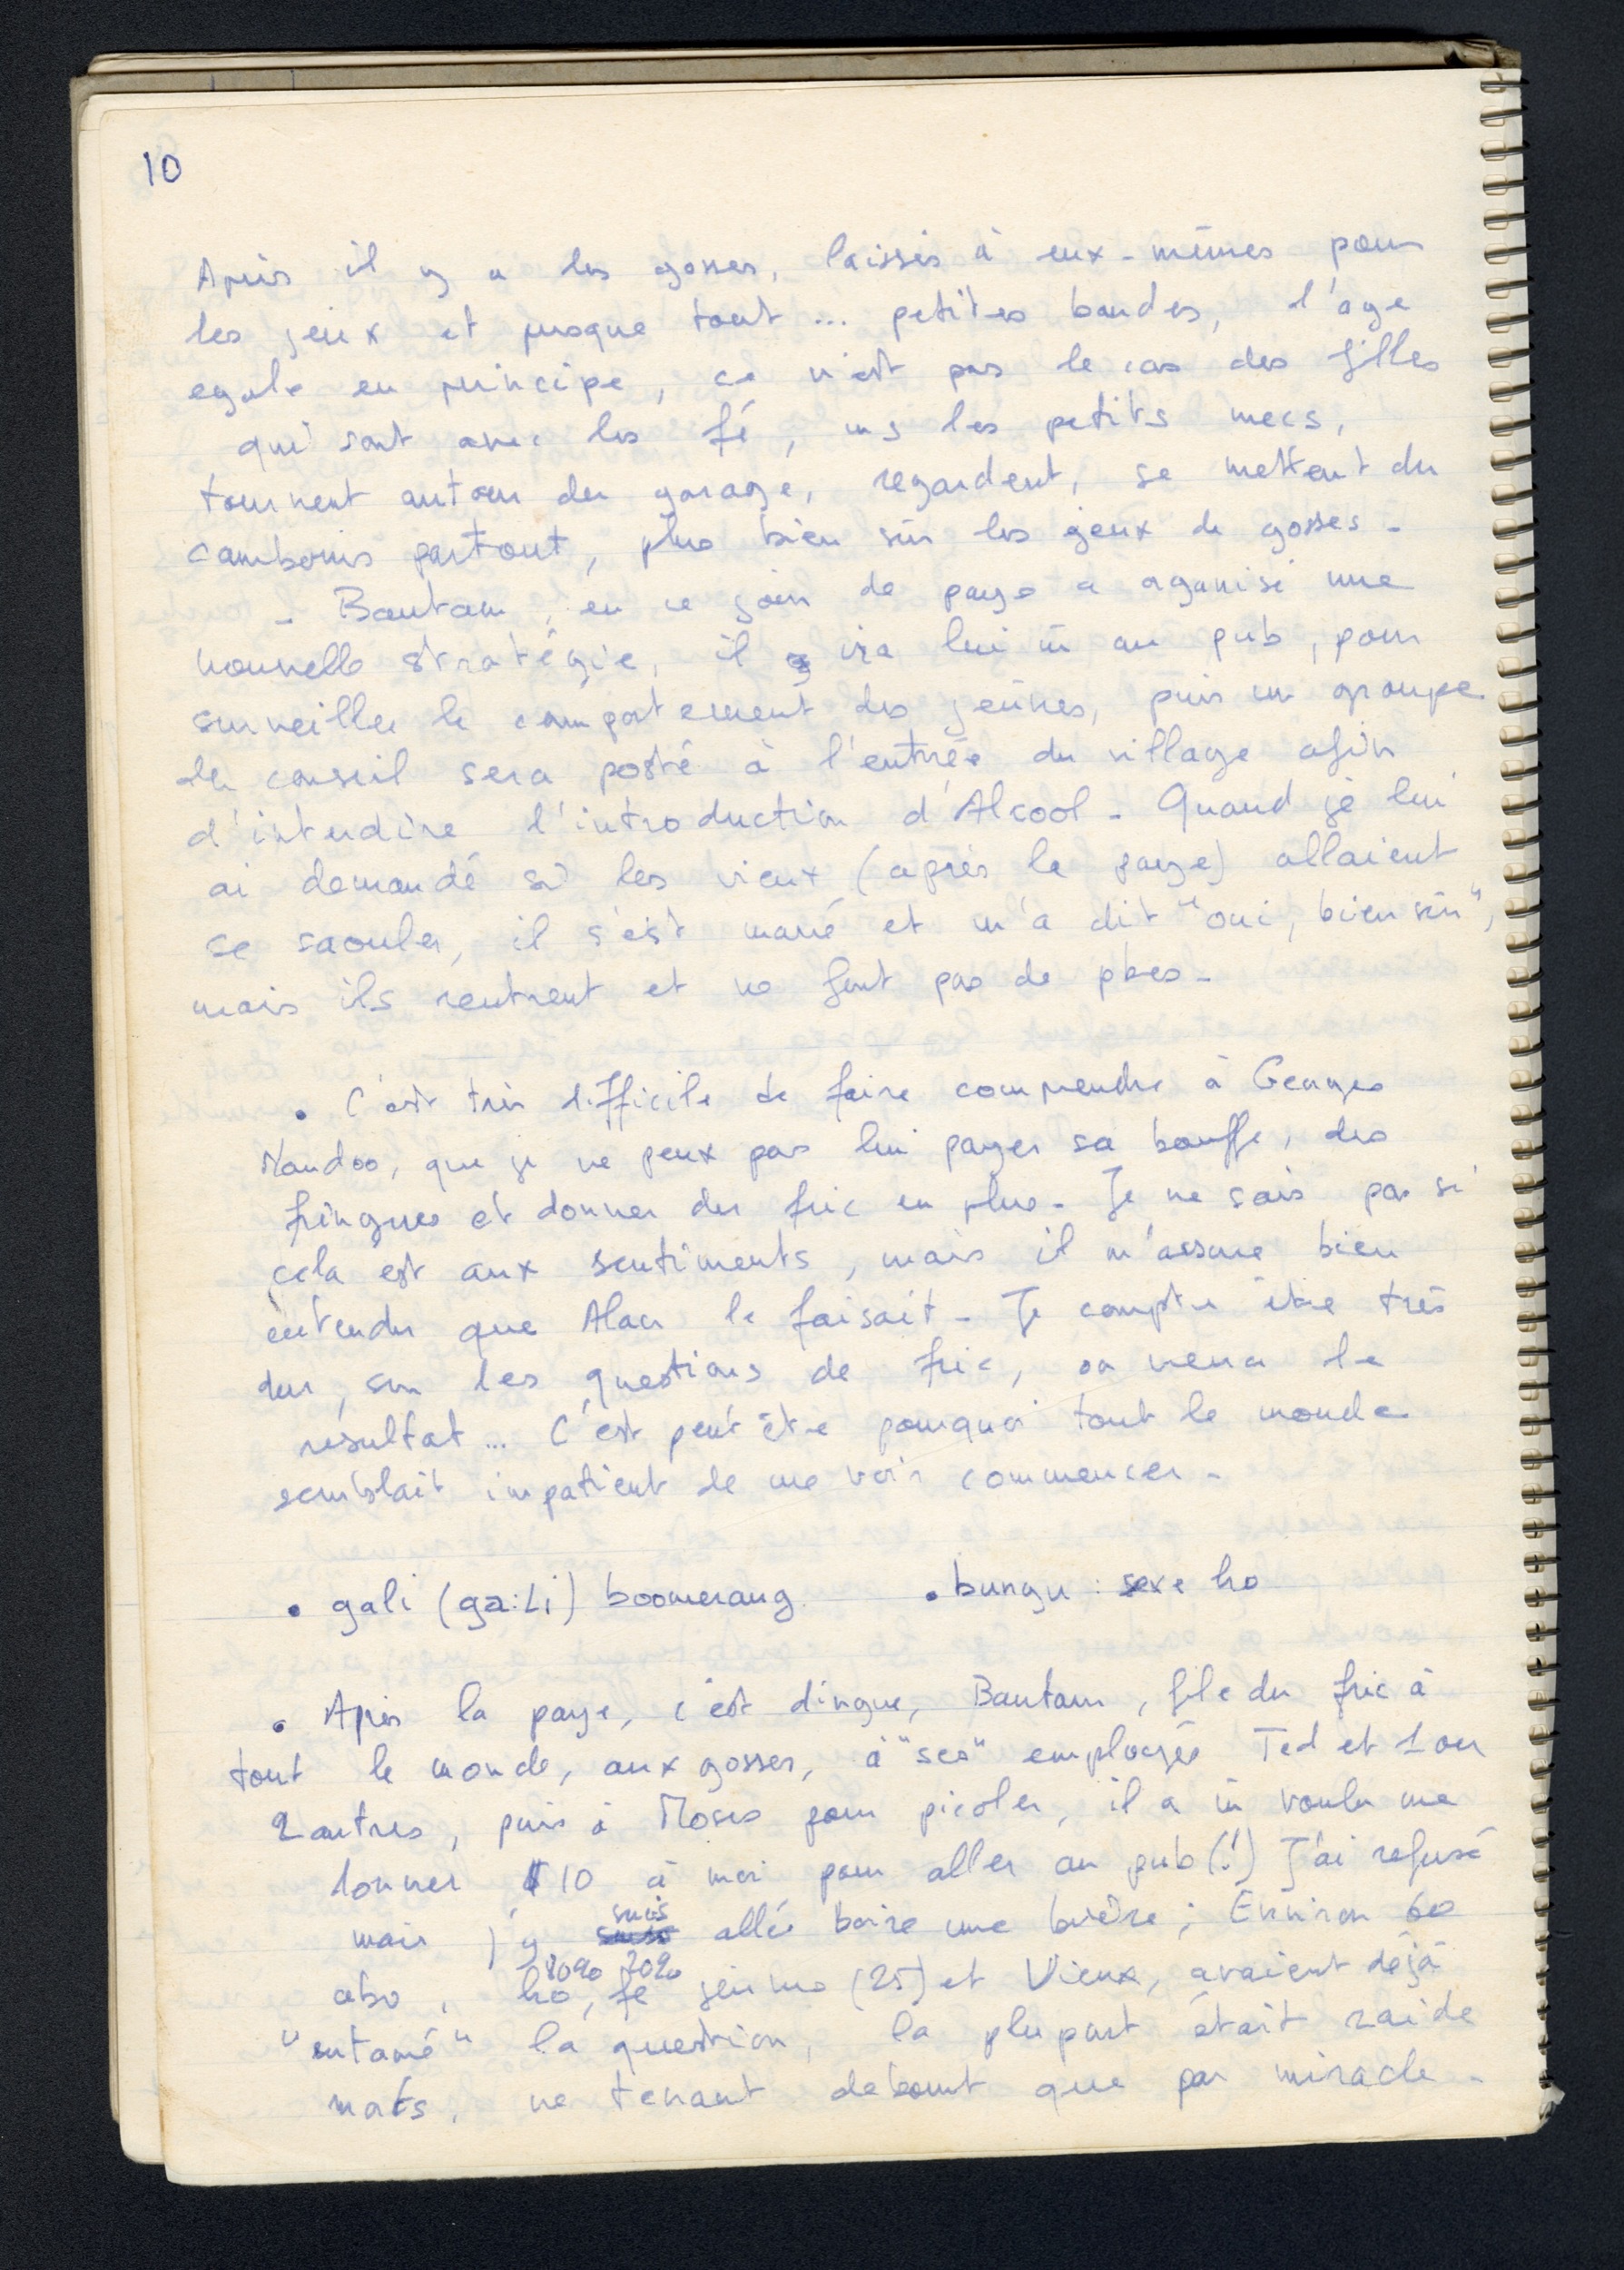 10
Après il y a les gosses, laissés à eux-mêmes pour
les jeux et presque tout ... petites bandes, d'age
egale en principe, ce n'est pas le cas des filles
qui sont avec les fé, ms les petits mecs,
tournent autour du garage, regardent, se mettent du
cambouis partout, plus bien sûr les jeux de gosses -
- Bantam, en ce jour de paye a organisé une
nouvelle stratégie, il ira lui m̄ au pub, pour
surveiller le comportement des jeunes, puis un groupe
du conseil sera posté à l'entrée du village afin
d'interdire l'introduction d'Alcool - Quand je lui
ai demandé si les vieux (après la paye) allaient
se saouler, il s'est marré et m'a dit "oui, bien sûr",
mais ils rentrent et ne font pas de pbes -
• C'est très difficile de faire comprendre à Georges
Nandoo, que je ne peux pas lui payer sa bouffe, des
fringues et donner du fric en plus - Je ne sais pas si
cela est aux sentiments, mais il m'assure bien
entendu que Alan le faisait - Je compte être très
dur, sur les questions de fric, on verra le
résultat ... C'est peut être pourquoi tout le monde
semblait impatient de me voir commencer -
• gali (ga:Li) boomerang. • bungu : sexe ho
• Après la paye, c'est dingue, Bantam, file du fric à
tout le monde, aux gosses, à "ses" employés Ted et 1 ou
2 autres, puis à Moses pour picoler, il a m̄ voulu me
donner $10 à moi pour aller au pub (!) J'ai refusé
mais j'y suis allé boire une bière ; Environ 60
abo, ho, fé jeunes (25) et Vieux, avaient déjà
"entamé" la question, la plupart était raide
mats, ne tenant debout que par miracle -